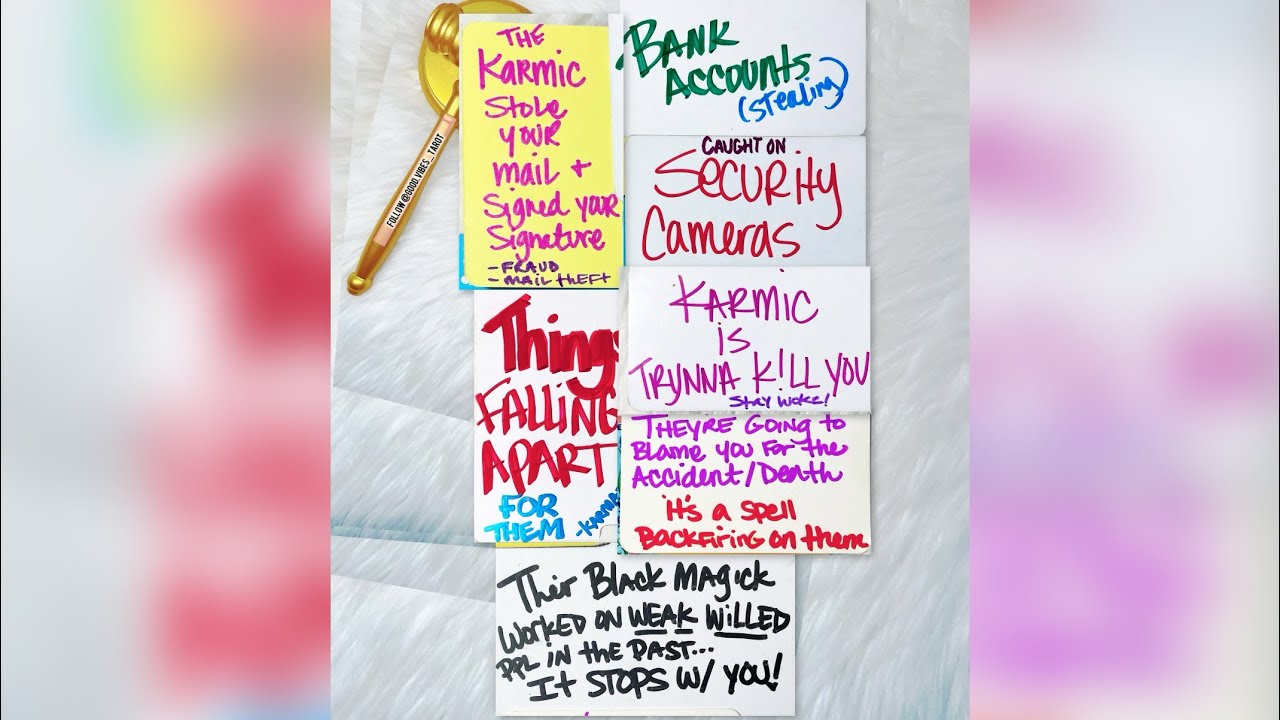 FOLLOW @GOOD.VIBES_TAROT
THE
KARMIC
Stole
YOUR
mail +
Signed YOUR
Signature
- FRAUD
- MAIL tHEFt
BANK
ACCOUNTS
(Stealing)
CAUGHT ON
SECURitY
Cameras
KARMIC
is
TRYNNA K!LL YOU
Stay Woke!
Things
FALLiNG
APART
FOR
THEM
-KARMA
THEY'RE GOiNG to
Blame you For the
Accident/Death
it's a spell
BackFiring on them
Their BLACK MAGICK
WORKED ON WEAK WiLLED
PPL iN the PAST...
It STOPS W/ YOU!